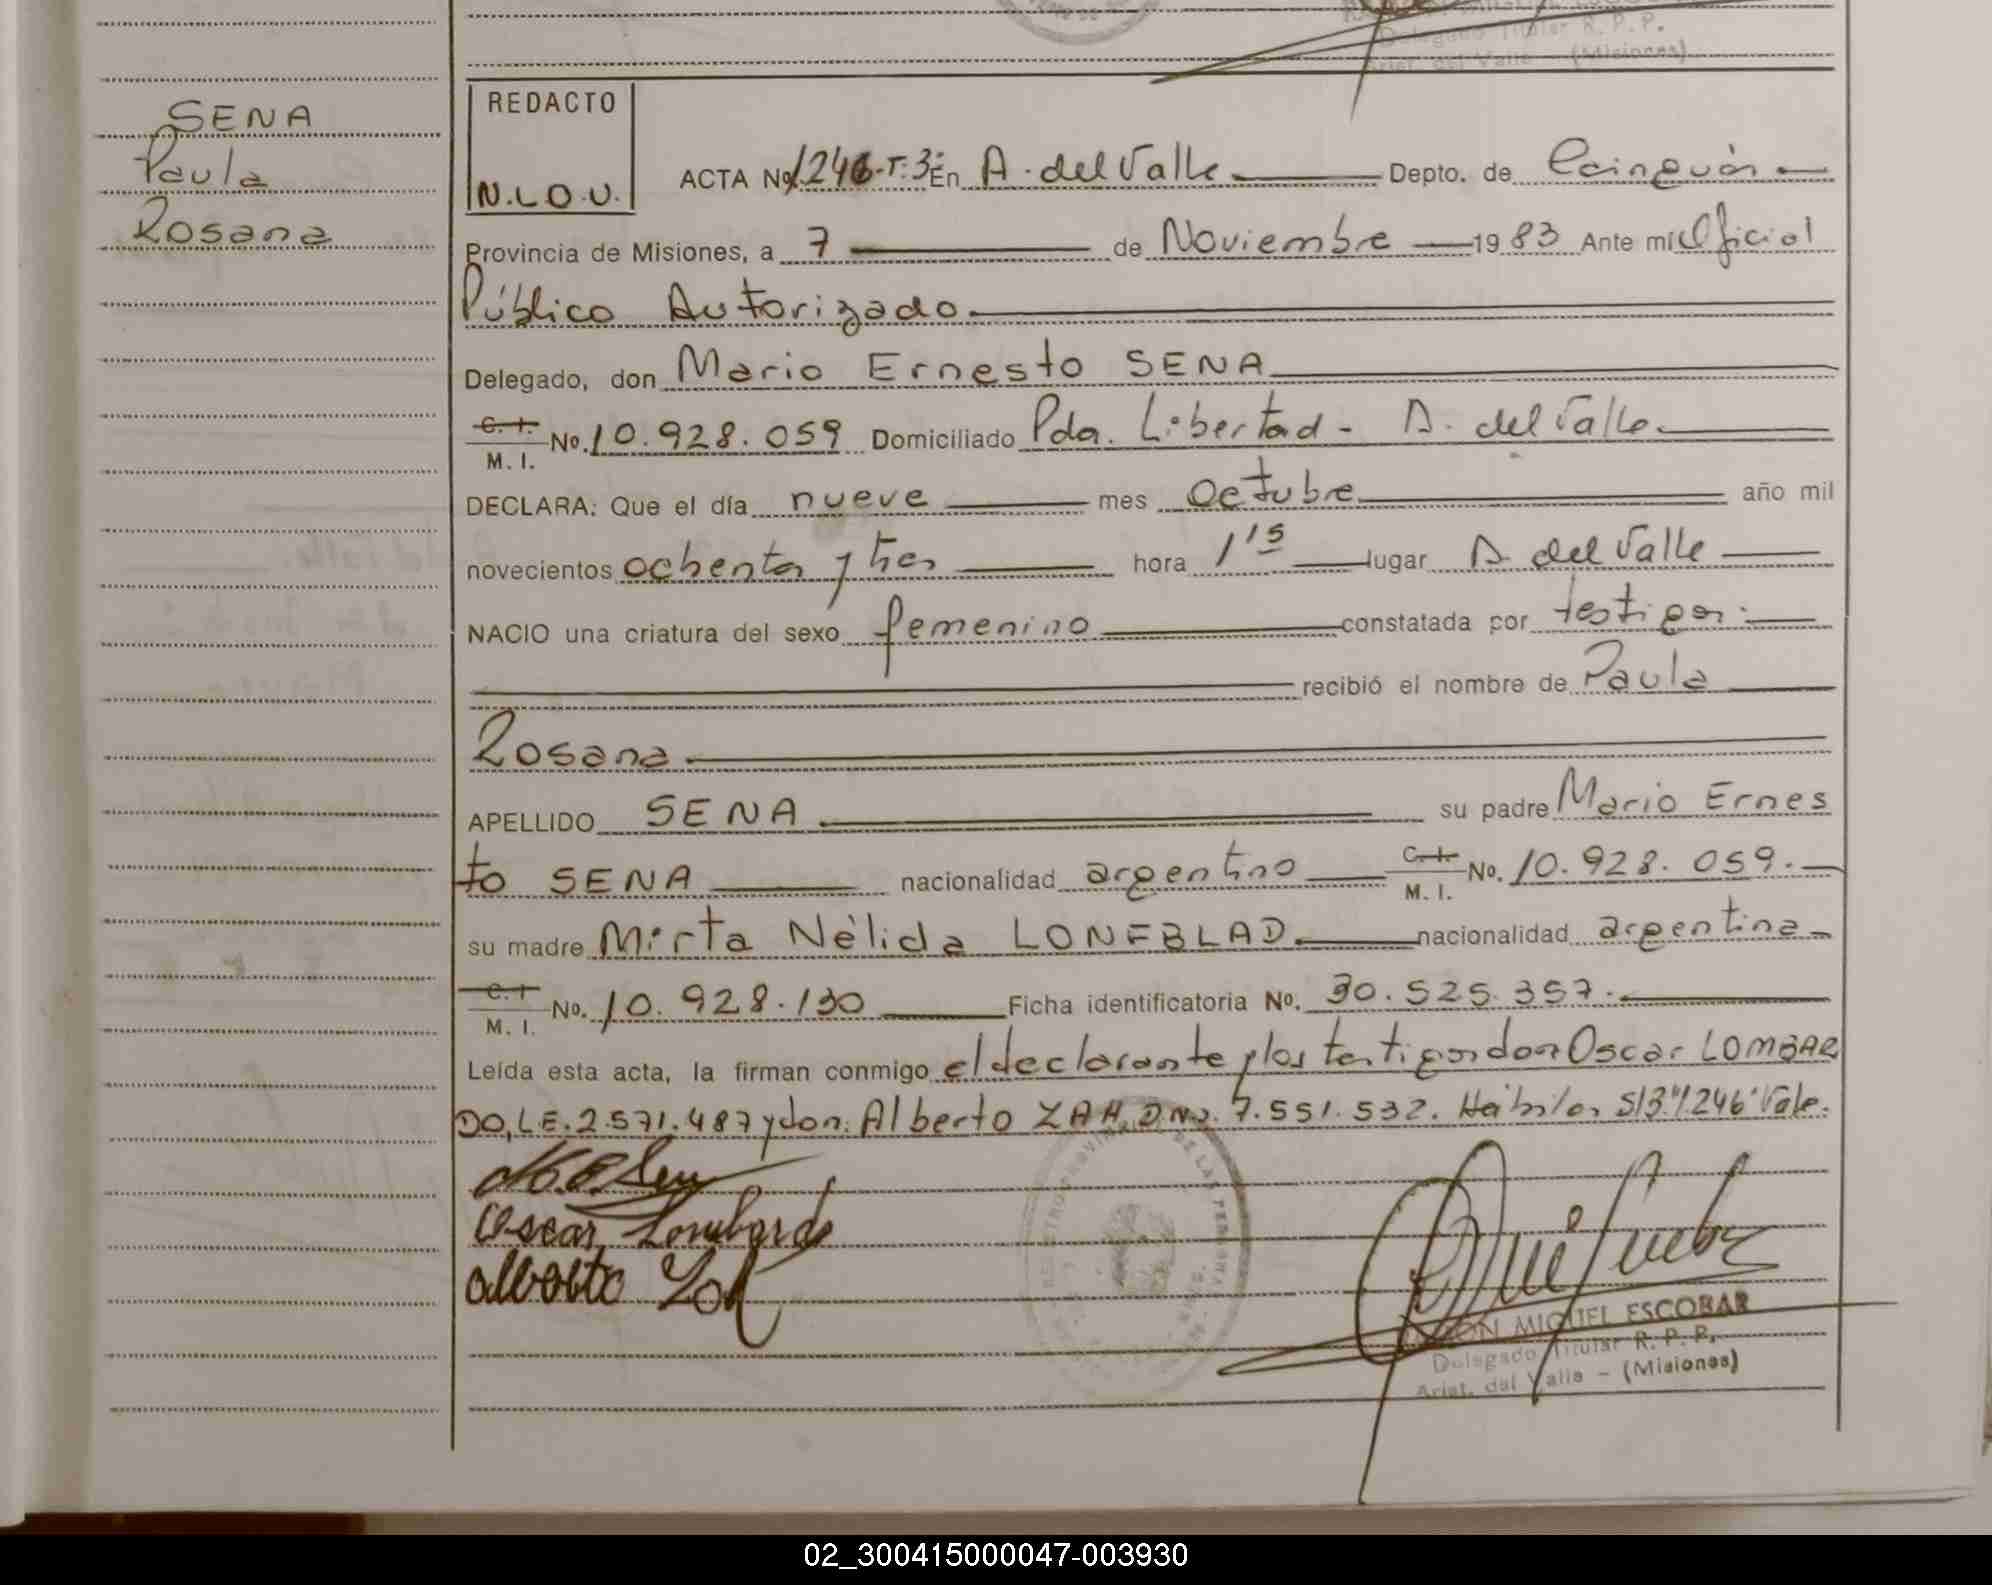 Delegado Titular R. P. P.
Arist. del Valle - (Misiones)
SENA
Paula
Rosana
REDACTO
N.L.O.U.
ACTA No. 1246-T:3: En A. del Valle Depto. de Cainguás
Provincia de Misiones, a 7 de Noviembre 1983 Ante mi Oficial
Público Autorizado.
Delegado, don Mario Ernesto SENA
C. I.
M. I. No. 10.928.059 Domiciliado Pda. Libertad - A. del Valle.
DECLARA: Que el día nueve mes octubre año mil
novecientos ochenta y tres hora 1 15 lugar A. del Valle
NACIO una criatura del sexo femenino constatada por testigos.
recibió el nombre de Paula
Rosana
APELLIDO SENA su padre Mario Ernes
to SENA nacionalidad argentino C. I. M. I. No. 10.928.059.
su madre Mirta Nélida LONEBLAD. nacionalidad argentina
C. I M. I. No. 10.928.130 Ficha identificatoria No. 30.525.357.
Leída esta acta, la firman conmigo el declarante y los testigos don Oscar LOMBAR
DO, L.E. 2.571.487 y don: Alberto ZAH, DNI. 7.551.532. Hábiles S/3"/1246" Vale.
Oscar Lombardo
Alberto
RAMON MIGUEL ESCOBAR
Delegado Titular R. P. P.
Arist. del Valle - (Misiones)
02_300415000047-003930